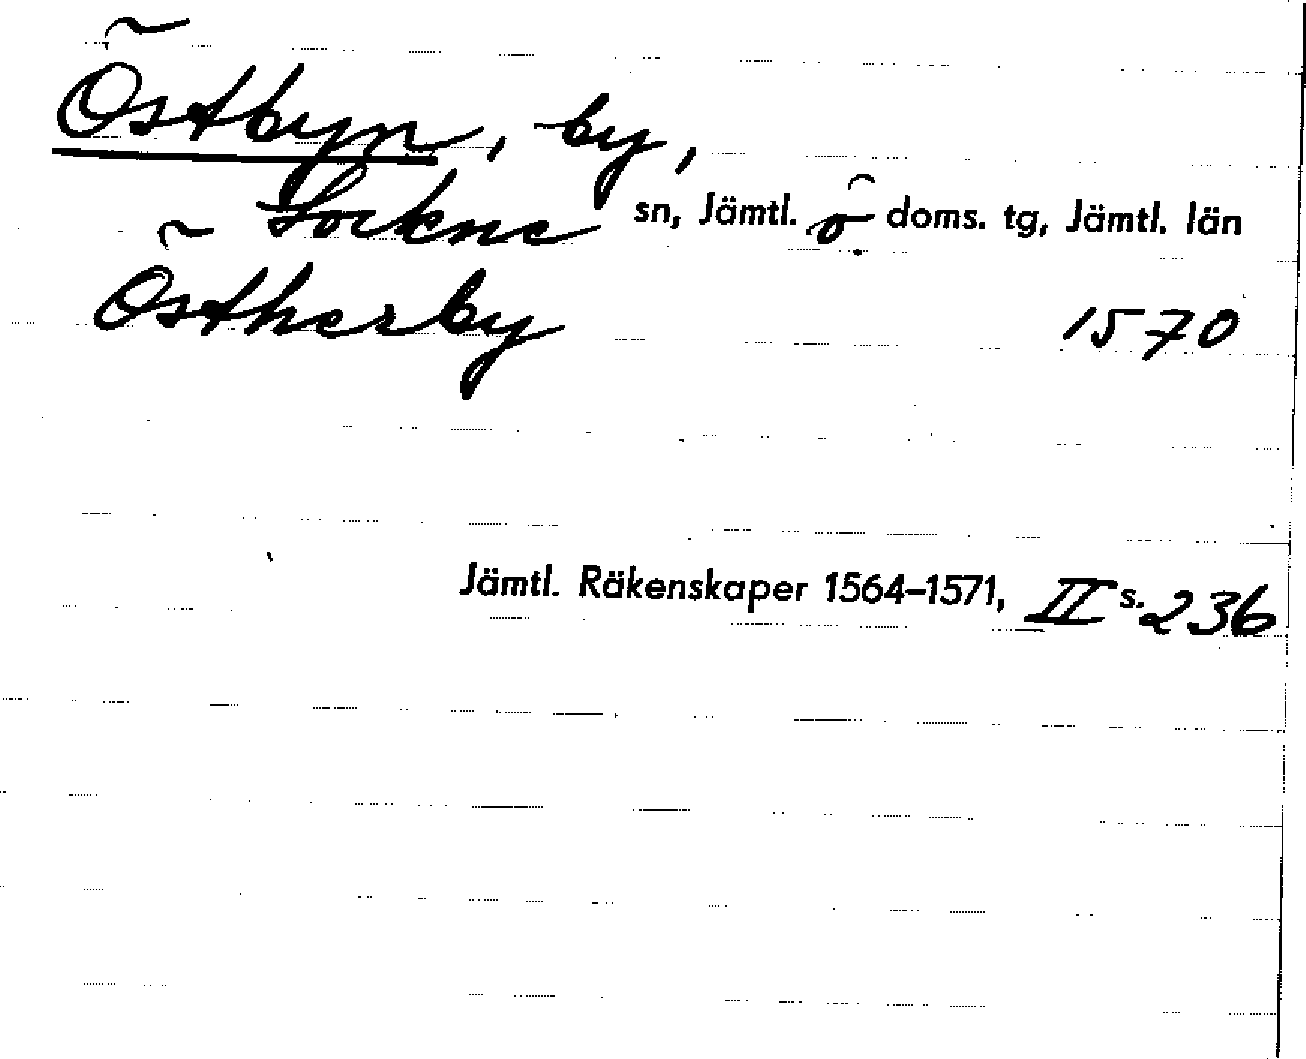 Östbyn, by,
Lockne sn, Jämtl. ö doms. tg, Jämtl. län
Östherby 1570
Jämtl. Räkenskaper 1564–1571, II s. 236